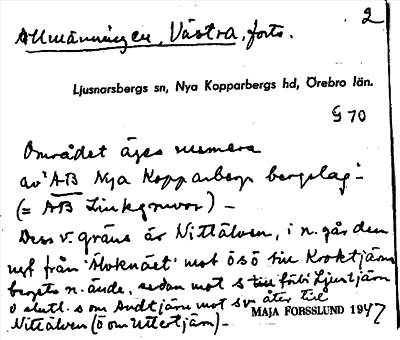 2
Allmänningen, Västra, forts.
Ljusnarsbergs sn, Nya Kopparbergs hd, Örebro län.
G 70
Området äges numera
av "AB Nya Kopparbergs bergslag"
(= AB Zinkgruvor) –
Dess v. gräns är Nittälven, i n. går den
upp från "Älvknäet" mot ösö till Kroktjärns
bergets n. ände, sedan mot s till förbi Ljustjärn
o slutl. s om Andtjärn mot sv åter till
Nittälven (ö om Uttertjärn) –
MAJA FORSSLUND 1947